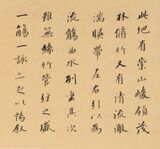 此地有崇山峻領茂
林脩竹又有清流激
湍暎帶左右引以為
流觴曲水列坐其次
雖無絲竹管弦之盛
一觴一詠亦足以暢叙